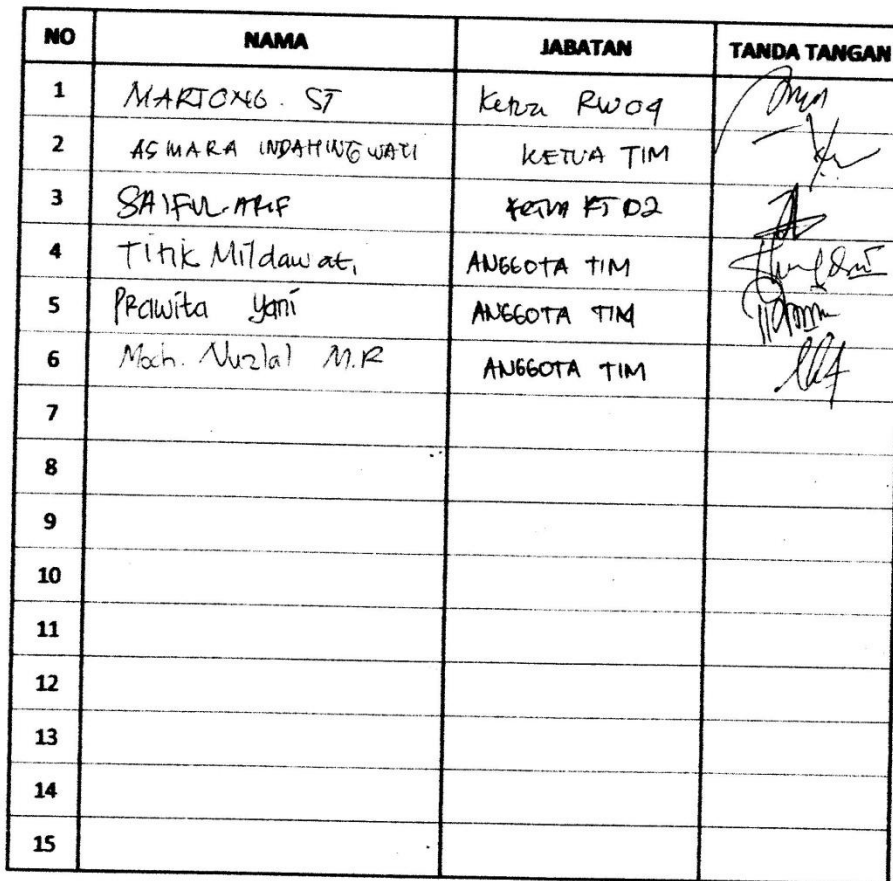 NO NAMA JABATAN TANDA TANGAN
1 MARTONO. ST Ketua RW 09
2 ASMARA INDAHINGWATI KETUA TIM
3 SAIFUL ARIF KETUA RT 02
4 Titik Mildawati ANGGOTA TIM
5 Prawita Yani ANGGOTA TIM
6 Moch. M.R ANGGOTA TIM
7
8
9
10
11
12
13
14
15